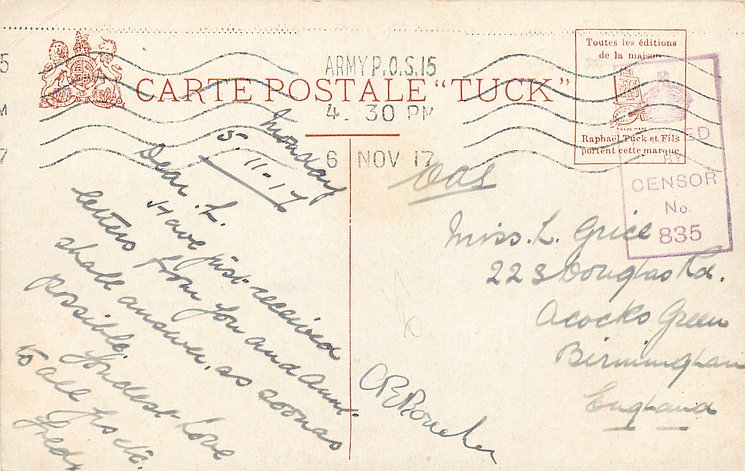 ARMY P.O. S.15
4. 30 PM
6 NOV 17
CARTE POSTALE "TUCK"
Toutes les éditions
de la maison
Raphaël Tuck et Fils
portent cette marque
CENSOR
No.
835
Monday
5-11-17
Dear L.
Have just received
letters from you and Aunt.
shall answer as soon as
possible.
Fondest Love
to all
Fred
OAS
Miss. L. Grice
223 Douglas Rd.
Acocks Green
Birmingham
England